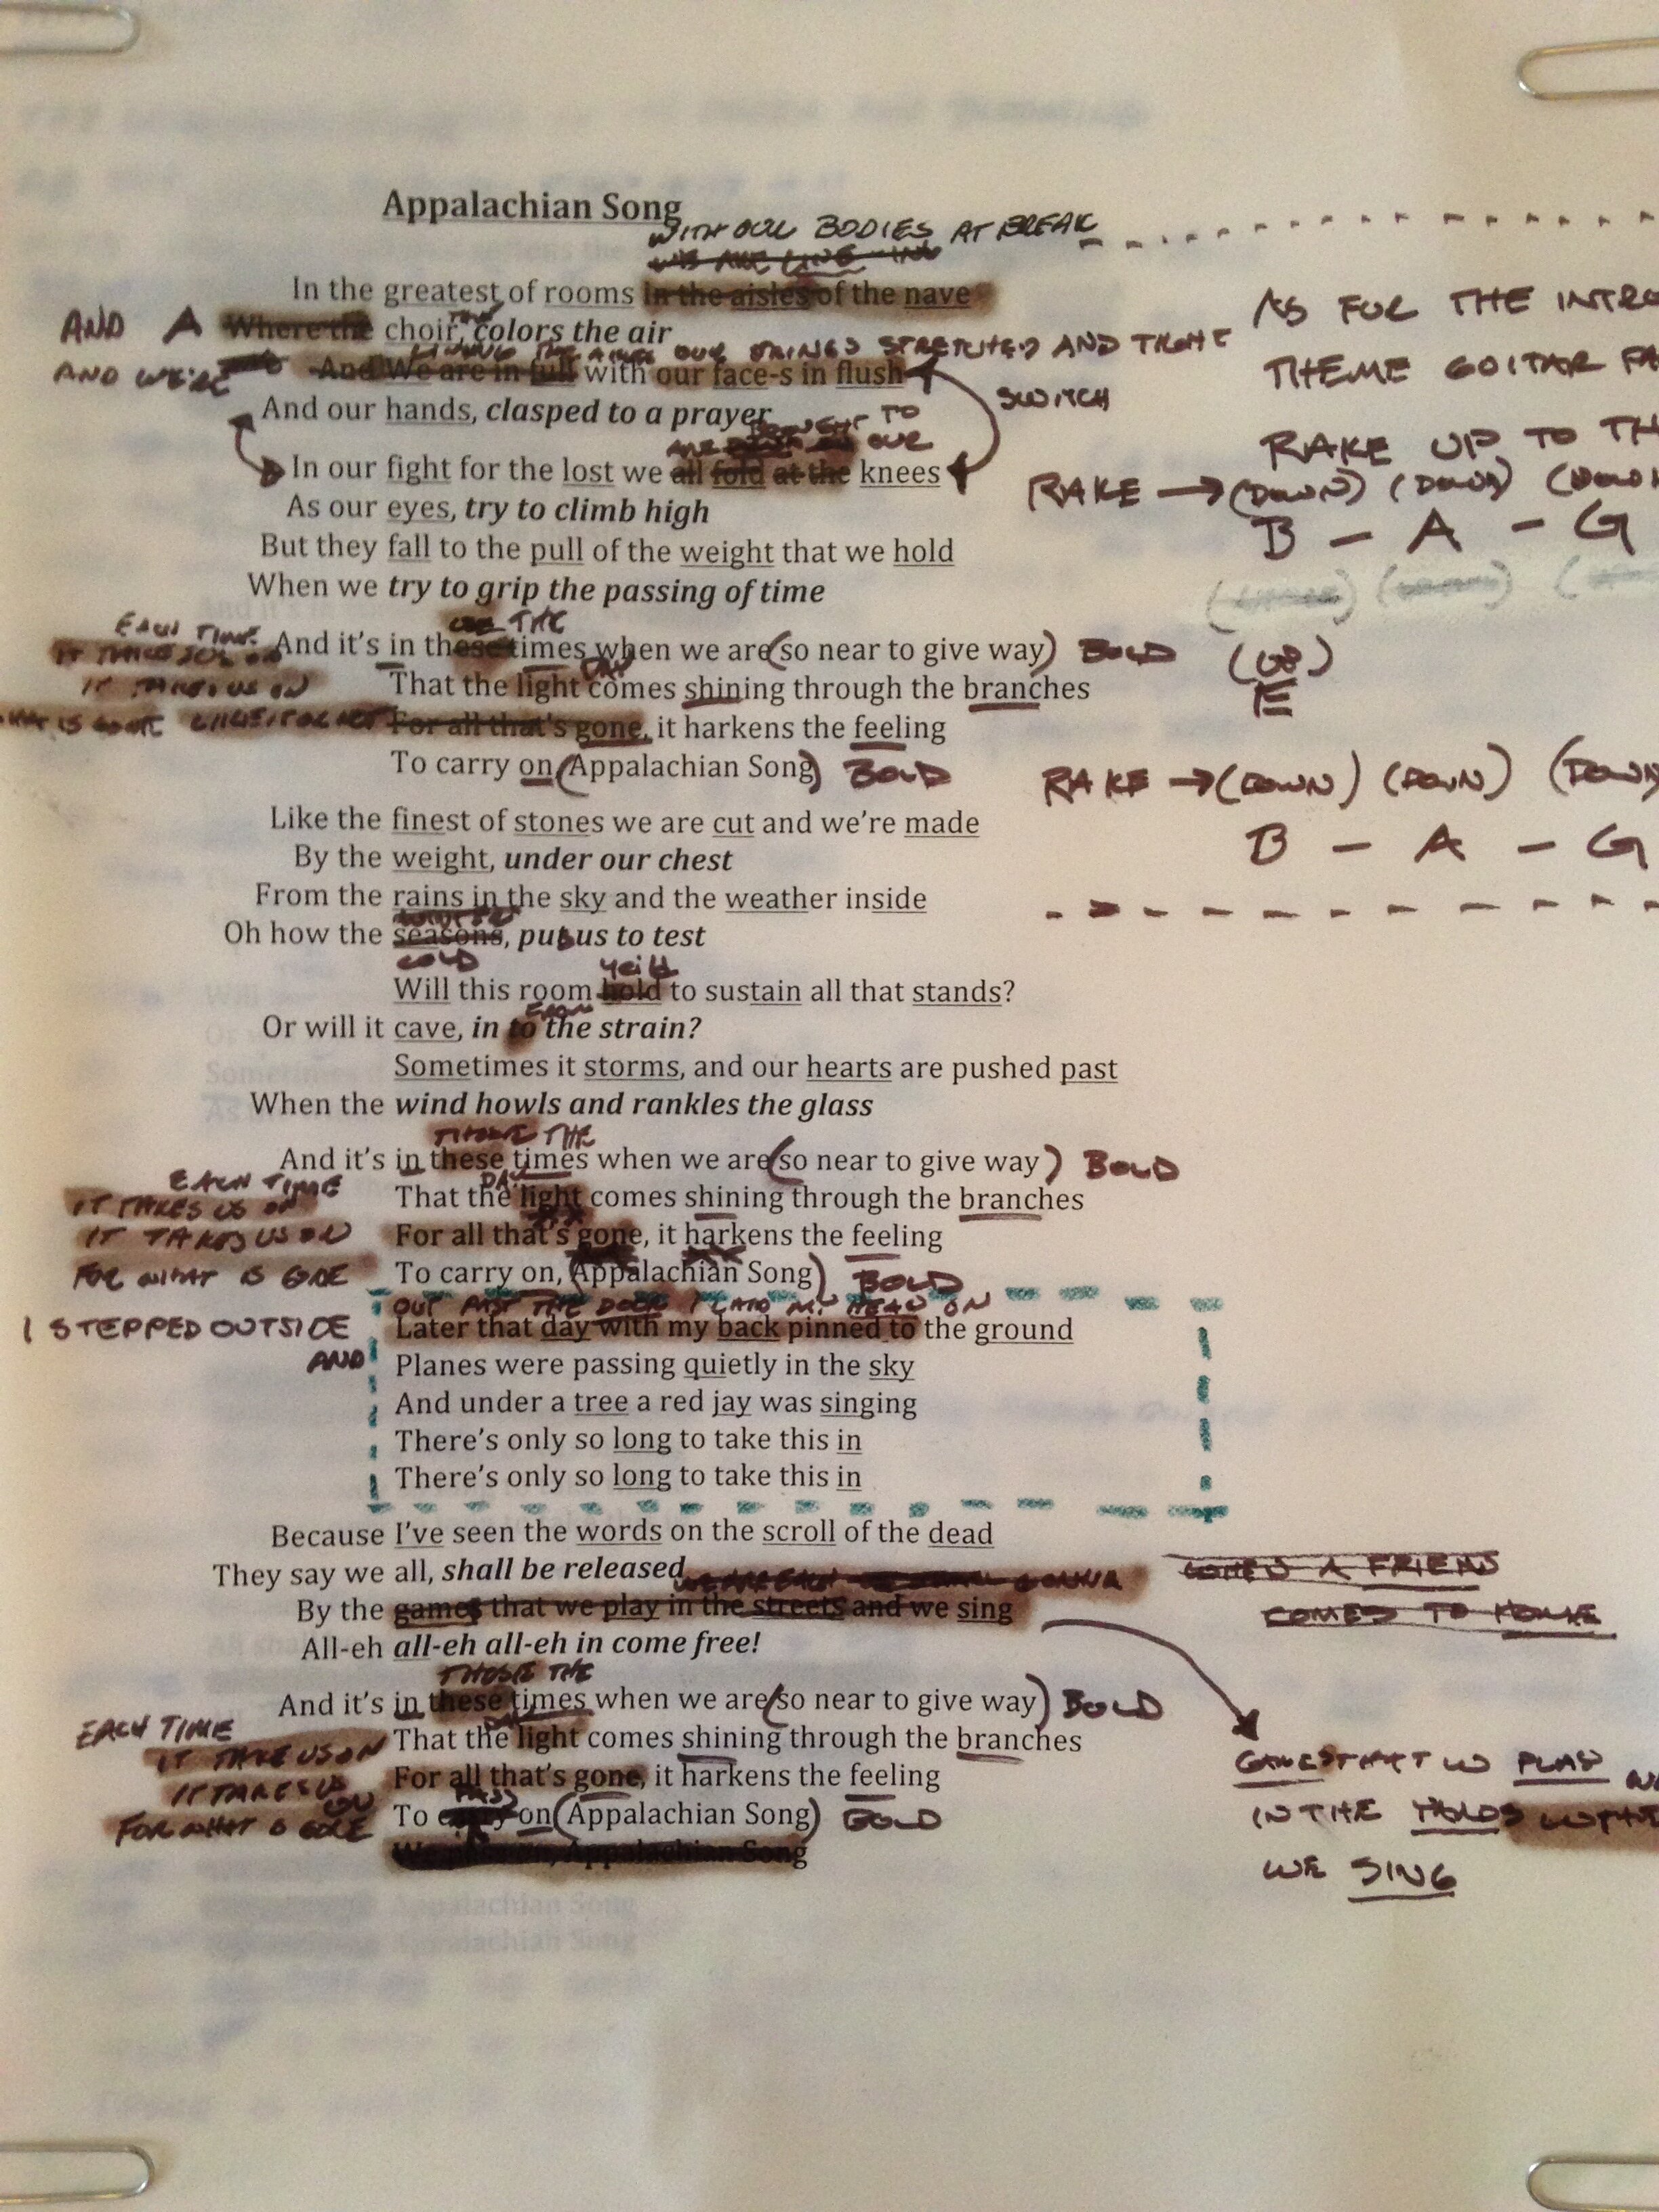 Appalachian Song
WITH OUR BODIES AT BREAK
WE ARE
In the greatest of rooms in the aisles of the nave
AND A Where the choir, colors the air
OUR STRINGS STRETCHED AND TIGHT
AND WE'RE And We are in full with our face-s in flush
SWITCH
And our hands, clasped to a prayer
BROUGHT TO
ARE OUR
In our fight for the lost we all fold at the knees
As our eyes, try to climb high
But they fall to the pull of the weight that we hold
When we try to grip the passing of time
THE
EACH TIME And it's in these times when we are (so near to give way) BOLD
DAY
IT TAKES US ON That the light comes shining through the branches
For all that's gone, it harkens the feeling
To carry on (Appalachian Song) BOLD
Like the finest of stones we are cut and we're made
By the weight, under our chest
From the rains in the sky and the weather inside
WINTER
Oh how the seasons, puts us to test
COLD
yeild
Will this room hold to sustain all that stands?
FROM
Or will it cave, in to the strain?
Sometimes it storms, and our hearts are pushed past
When the wind howls and rankles the glass
THE
And it's in these times when we are (so near to give way) BOLD
EACH TIME
DAY
IT TAKES US ON That the light comes shining through the branches
IT TAKES US ON For all that's gone, it harkens the feeling
FOR WHAT IS GONE To carry on, (Appalachian Song) BOLD
OUT PAST THE DOOR I LAID MY HEAD ON
I STEPPED OUTSIDE Later that day with my back pinned to the ground
AND Planes were passing quietly in the sky
And under a tree a red jay was singing
There's only so long to take this in
There's only so long to take this in
Because I've seen the words on the scroll of the dead
They say we all, shall be released
By the games that we play in the streets and we sing
All-eh all-eh all-eh in come free!
THOSE THE
And it's in these times when we are (so near to give way) BOLD
EACH TIME
That the light comes shining through the branches
IT TAKE US ON
For all that's gone, it harkens the feeling
IT TAKES US ON
PASS
FOR WHAT IS GONE To carry on (Appalachian Song) BOLD
Appalachian Song
AS FOR THE INTRO
THEME GUITAR
RAKE UP TO TH
RAKE → (DOWN) (DOWN) (DOWN
B – A – G
(UP)
E
RAKE → (DOWN) (DOWN) (DOWN
B – A – G
COMES A FRIEND
COMES TO
GAMES THAT W PLAY
IN THE
WE SING